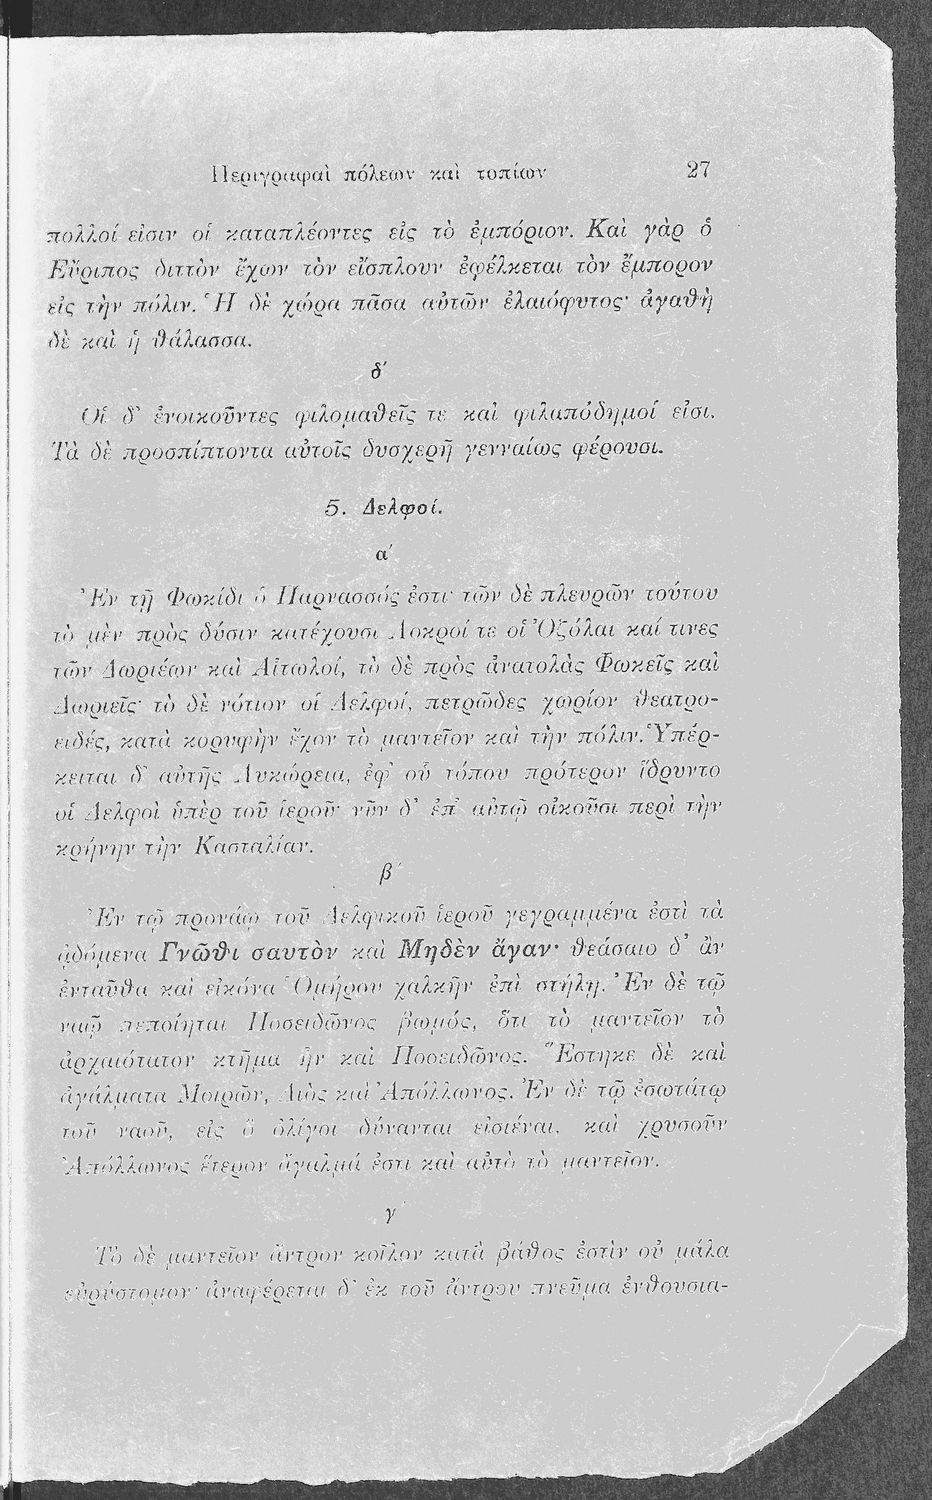 Περιγραφαὶ πόλεων καὶ τοπίων 27
πολλοί εἰσιν οἱ καταπλέοντες εἰς τὸ ἐμπόριον. Καὶ γὰρ ὁ
Εὔριπος διττὸν ἔχων τὸν εἴσπλουν ἐφέλκεται τὸν ἔμπορον
εἰς τὴν πόλιν. Ἡ δὲ χώρα πᾶσα αὐτῶν ἐλαιόφυτος· ἀγαθὴ
δὲ καὶ ἡ θάλασσα.
δ΄
Οἱ δ’ ἐνοικοῦντες φιλομαθεῖς τε καὶ φιλαπόδημοί εἰσι.
Τὰ δὲ προσπίπτοντα αὐτοῖς δυσχερῆ γενναίως φέρουσι.
5. Δελφοί.
α΄
Ἐν τῇ Φωκίδι ὁ Παρνασσός ἐστι· τῶν δὲ πλευρῶν τούτου
τὸ μὲν πρὸς δύσιν κατέχουσι Λοκροί τε οἱ Ὀζόλαι καί τινες
τῶν Δωριέων καὶ Αἰτωλοί, τὸ δὲ πρὸς ἀνατολὰς Φωκεῖς καὶ
Δωριεῖς· τὸ δὲ νότιον οἱ Δελφοί, πετρῶδες χωρίον θεατρο-
ειδές, κατὰ κορυφὴν ἔχον τὸ μαντεῖον καὶ τὴν πόλιν. Ὑπέρ-
κειται δ’ αὐτῆς Λυκώρεια, ἐφ’ οὗ τόπου πρότερον ἵδρυντο
οἱ Δελφοὶ ὑπὲρ τοῦ ἱεροῦ· νῦν δ’ ἐπ’ αὐτῷ οἰκοῦσι περὶ τὴν
κρήνην τὴν Κασταλίαν.
β΄
Ἐν τῷ προνάῳ τοῦ Δελφικοῦ ἱεροῦ γεγραμμένα ἐστὶ τὰ
ᾀδόμενα Γνῶθι σαυτὸν καὶ Μηδὲν ἄγαν· θεάσαιο δ’ ἂν
ἐνταῦθα καὶ εἰκόνα Ὁμήρου χαλκῆν ἐπὶ στήλῃ. Ἐν δὲ τῷ
ναῷ πεποίηται Ποσειδῶνος βωμός, ὅτι τὸ μαντεῖον τὸ
ἀρχαιότατον κτῆμα ἦν καὶ Ποσειδῶνος. Ἕστηκε δὲ καὶ
ἀγάλματα Μοιρῶν, Διὸς καὶ Ἀπόλλωνος. Ἐν δὲ τῷ ἐσωτάτῳ
τοῦ ναοῦ, εἰς ὃ ὀλίγοι δύνανται εἰσιέναι, καὶ χρυσοῦν
Ἀπόλλωνος ἕτερον ἄγαλμά ἐστι καὶ αὐτὸ τὸ μαντεῖον.
γ΄
Τὸ δὲ μαντεῖον ἄντρον κοῖλον κατὰ βάθος ἐστὶν οὐ μάλα
εὐρύστομον· ἀναφέρεται δ’ ἐκ τοῦ ἄντρου πνεῦμα ἐνθουσια-